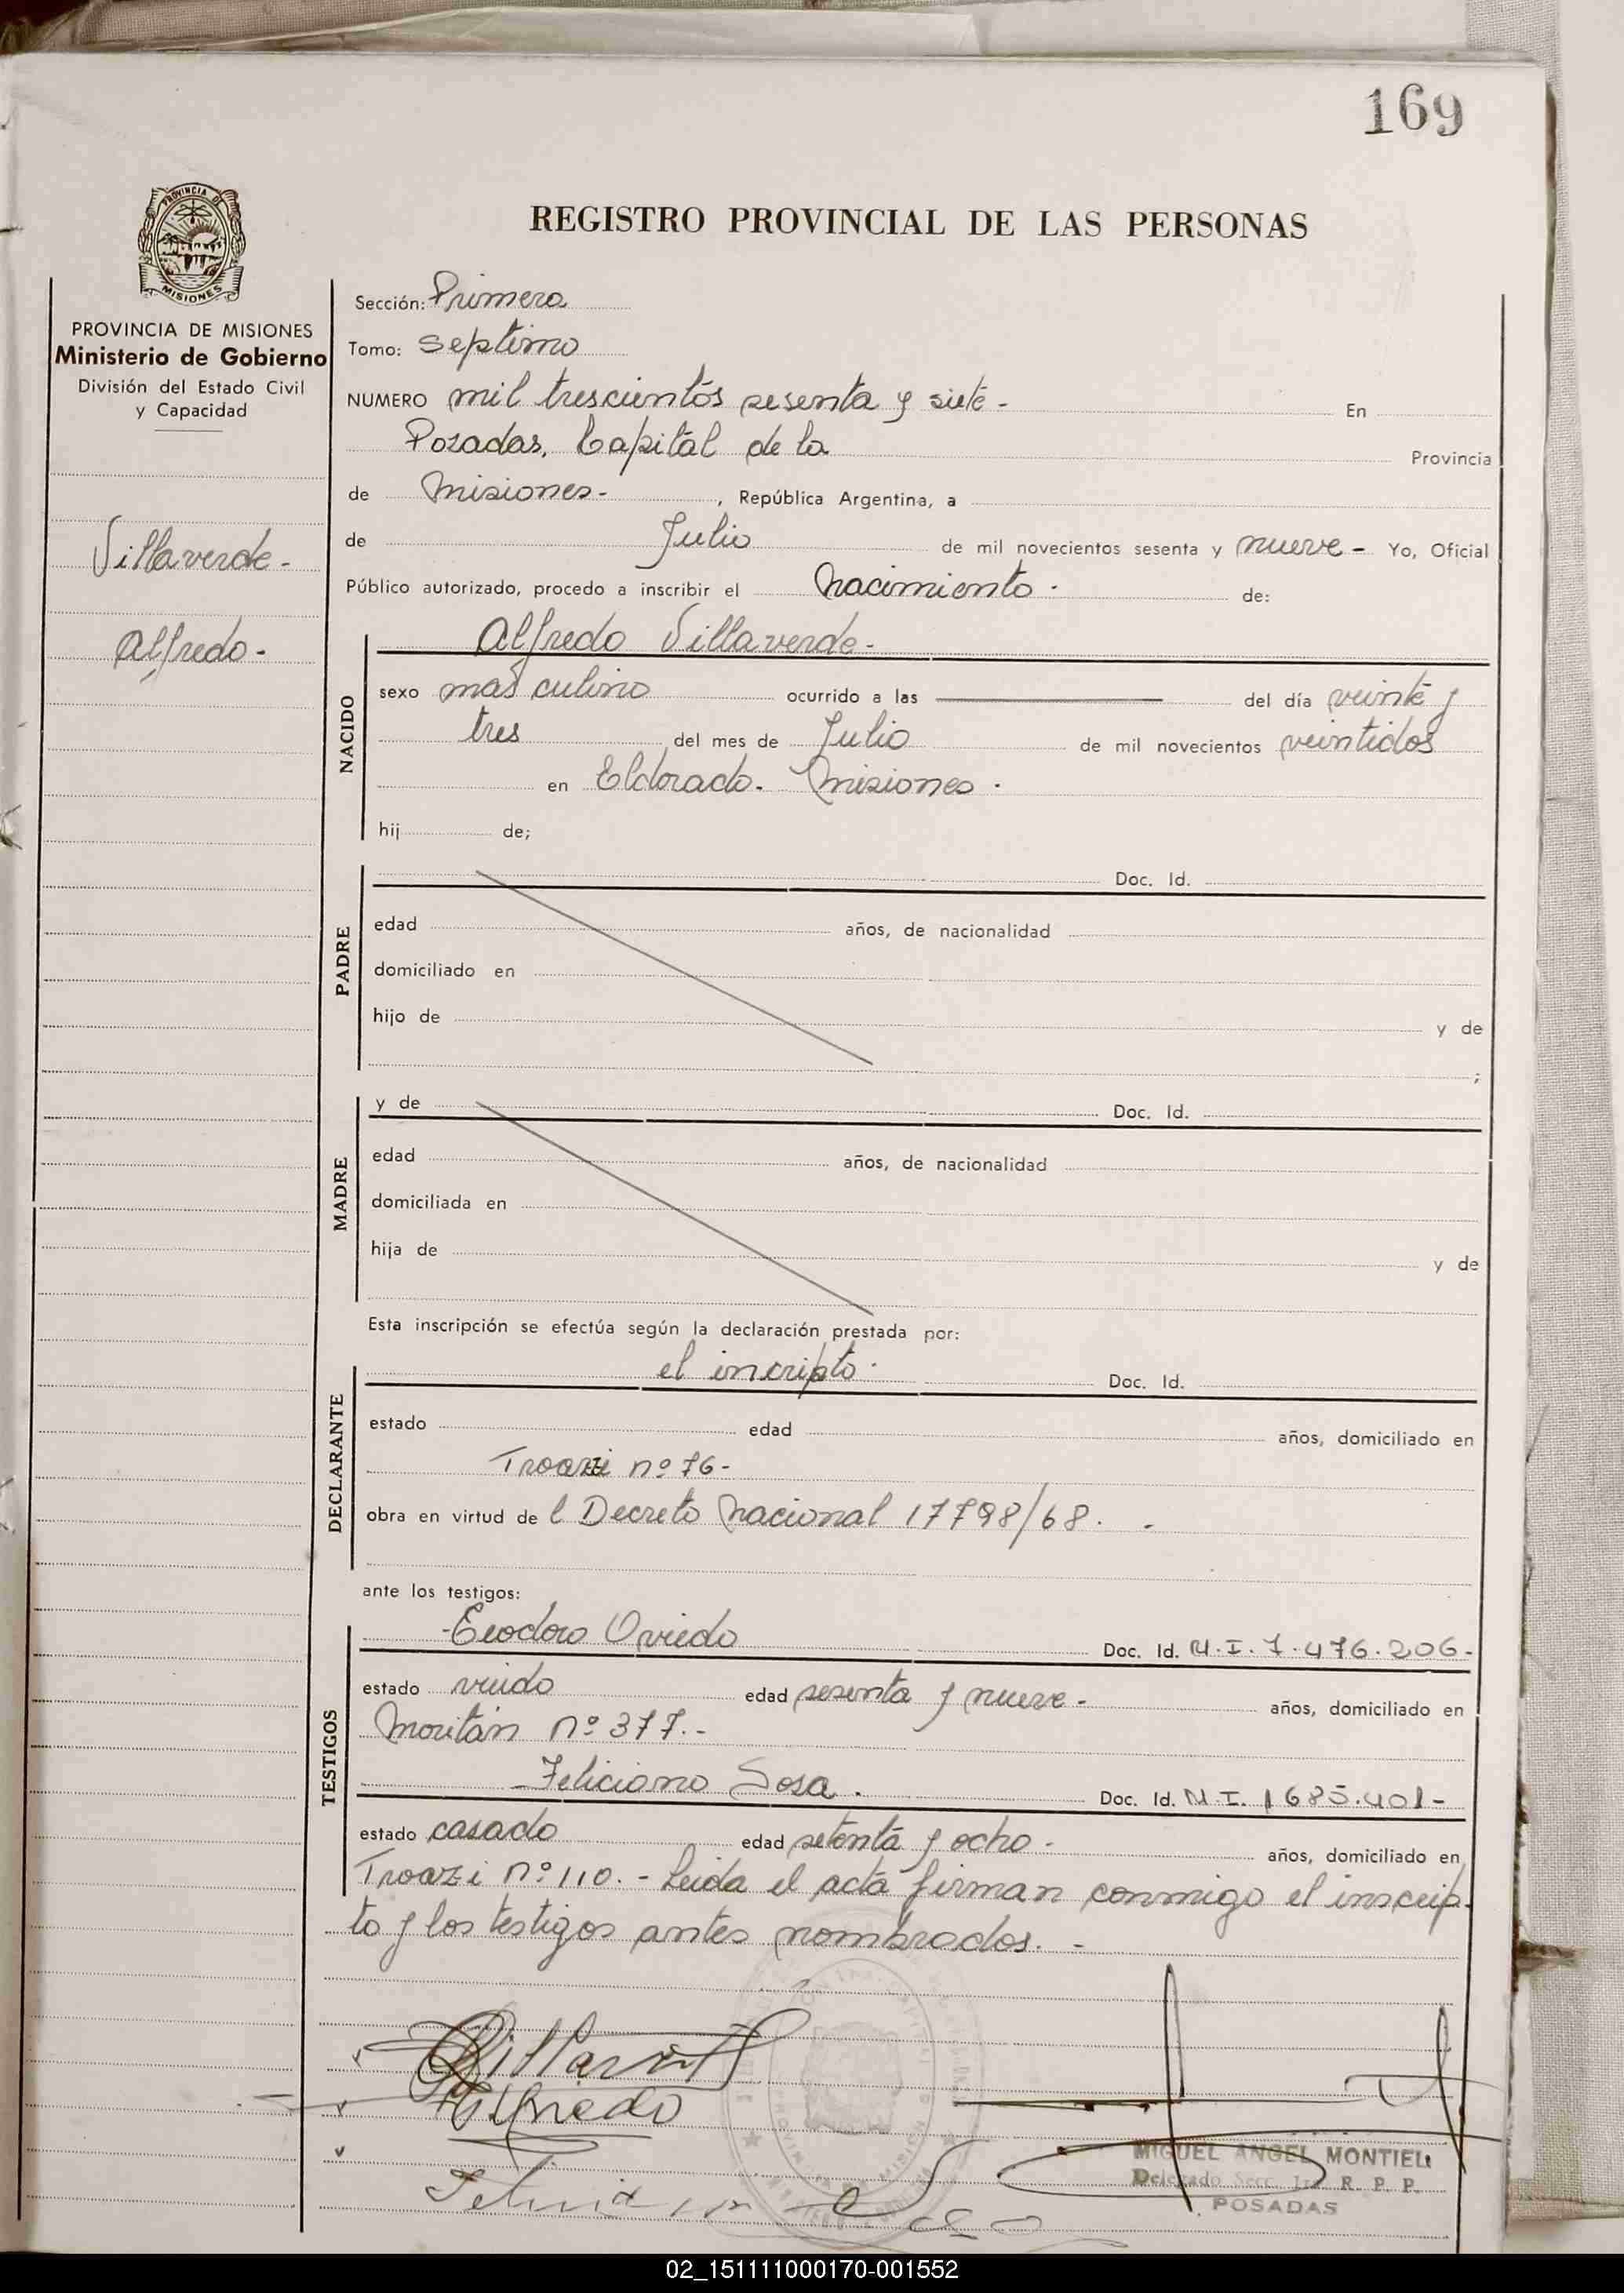 169
PROVINCIA DE
MISIONES
REGISTRO PROVINCIAL DE LAS PERSONAS
PROVINCIA DE MISIONES
Ministerio de Gobierno
División del Estado Civil
y Capacidad
Villaverde-
Alfredo-
Sección: Primera
Tomo: septimo
NUMERO mil trescientos sesenta y siete- En
Posadas, Capital de la Provincia
de Misiones-, República Argentina, a
de Julio de mil novecientos sesenta y nueve- Yo, Oficial
Público autorizado, procedo a inscribir el Nacimiento. de:
NACIDO
Alfredo Villaverde-
sexo masculino ocurrido a las del día veinte y
tres del mes de Julio de mil novecientos veintidos
en Eldorado. Misiones.
hij de;
PADRE
Doc. Id.
edad años, de nacionalidad
domiciliado en
hijo de y de
;
MADRE
y de Doc. Id.
edad años, de nacionalidad
domiciliada en
hija de y de
Esta inscripción se efectúa según la declaración prestada por:
DECLARANTE
el incripto. Doc. Id.
estado edad años, domiciliado en
Troazi nº 76-
obra en virtud del Decreto Nacional 17798/68. -
ante los testigos:
TESTIGOS
-Eeodoro Oviedo Doc. Id. M.I.7.476.206-
estado viudo edad sesenta y nueve- años, domiciliado en
Moritán nº 377.-
-Feliciano Sosa. Doc. Id. M.I. 1685.401-
estado casado edad setenta y ocho- años, domiciliado en
Troazi nº 110.- Leida el acta firman conmigo el inscrip-
to y los testigos antes nombrados. -
Villaverde
Alfredo
MIGUEL ANGEL MONTIEL
Delegado Secc. 1ra R. P. P.
POSADAS
02_151111000170-001552